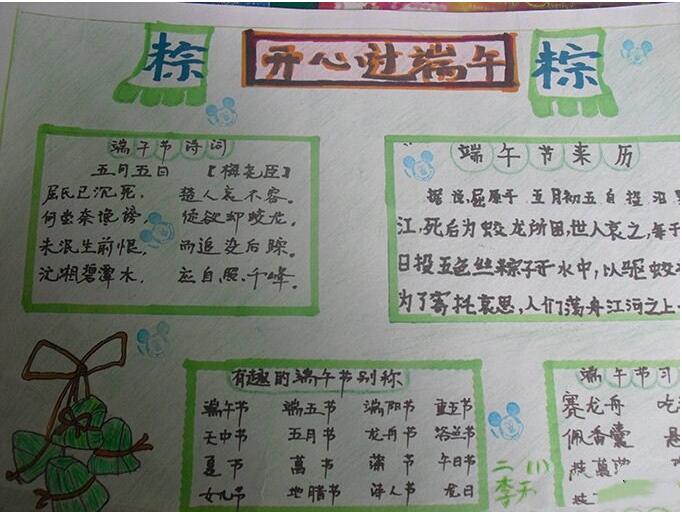 粽 开心过端午 粽
端午节诗词
五月五日 【梅尧臣】
屈氏已沉死, 楚人哀不容。
何尝奈谗谤, 徒欲却蛟龙。
未泯生前恨, 而追没后踪。
沅湘碧潭水, 应自照千峰。
端午节来历
据说屈原于五月初五自投汨
江,死后为蛟龙所困,世人哀之,每于
日投五色丝粽子于水中,以驱蛟
为了寄托哀思,人们荡舟江河之上
有趣的端午节别称
端午节 端五节 端阳节 重五节
天中节 五月节 龙舟节 浴兰节
夏节 菖节 蒲节 午日节
女儿节 地腊节 诗人节 龙日
二(1)
李天
端午节习
赛龙舟 吃
佩香囊 悬